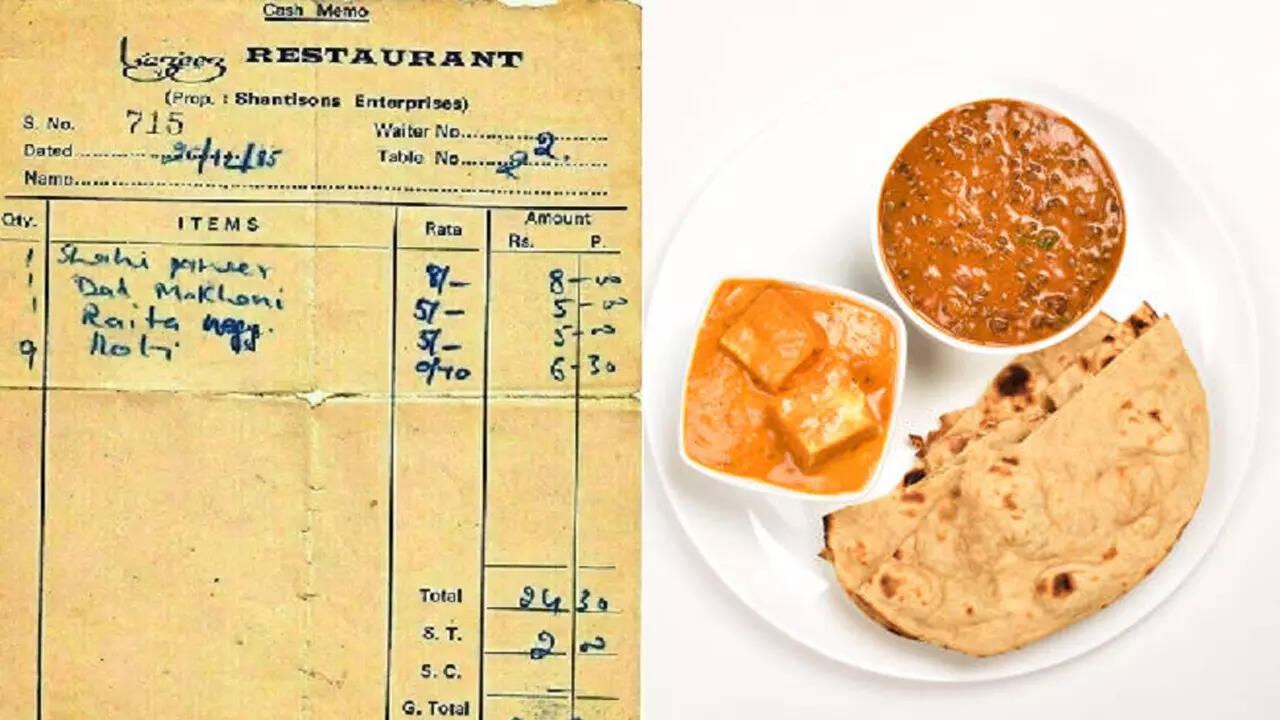 Cash Memo
Lazeez RESTAURANT
(Prop. : Shantisons Enterprises)
S. No. 715
Waiter No. 2.
Dated 20/12/85
Table No. 2
Name
Qty. ITEMS Rate Amount
Rs. P.
1 Shahi paneer 8/- 8-00
1 Dal Makhani 5/- 5-00
1 Raita 5/- 5-00
9 Roti 0/70 6-30
Total 24 30
S. T. 2 00
S. C.
G. Total